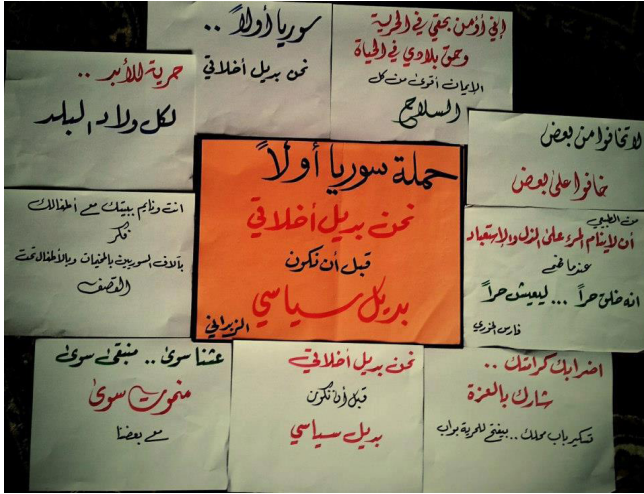 سوريا أولاً ..
نحن بديل أخلاقي
إني أؤمن بحقي في الحرية
وحق بلادي في الحياة
الايمان أقوى من كل
السلاح
حرية للأبد ..
لكل ولاد البلد
لا تخافوا من بعض
خافوا على بعض
حملة سوريا أولاً
نحن بديل أخلاقي
قبل أن نكون
بديل سياسي
الزبراني
انت ونايم ببيتك مع أطفالك
فكر
بآلاف السوريين بالمخيمات وبالأطفال تحت
القصف
من الطبيعي
أن لا ينام المرء على الذل والاستعباد
عندما
انه خلق حراً ... ليعيش حراً
فارس الخوري
عشنا سوى .. منبقى سوى
منموت سوى
مع بعضنا
نحن بديل أخلاقي
قبل أن نكون
بديل سياسي
اضرابك كرامتك ..
شارك بالعزة
تسكير باب محلك .. بيفتح للحرية بواب